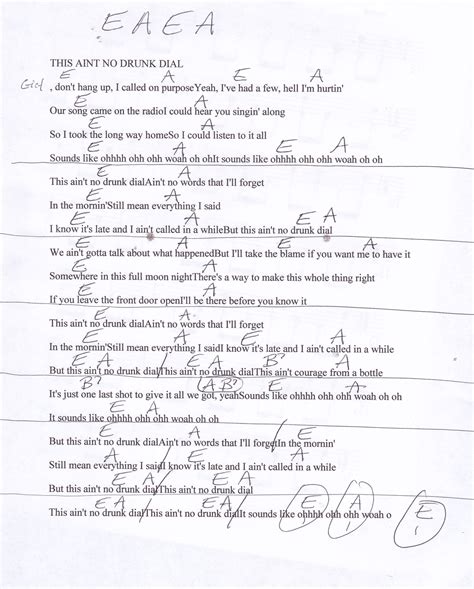 E A E A
THIS AINT NO DRUNK DIAL
E A E A
Girl , don't hang up, I called on purposeYeah, I've had a few, hell I'm hurtin'
E A
Our song came on the radioI could hear you singin' along
E A
So I took the long way homeSo I could listen to it all
E A E A
Sounds like ohhhh ohh ohh woah oh ohIt sounds like ohhhh ohh ohh woah oh oh
E A
This ain't no drunk dialAin't no words that I'll forget
E A
In the mornin'Still mean everything I said
E A E A
I know it's late and I ain't called in a whileBut this ain't no drunk dial
E A E A
We ain't gotta talk about what happenedBut I'll take the blame if you want me to have it
E A
Somewhere in this full moon nightThere's a way to make this whole thing right
E A
If you leave the front door openI'll be there before you know it
E A
This ain't no drunk dialAin't no words that I'll forget
E A E A
In the mornin'Still mean everything I saidI know it's late and I ain't called in a while
E A E A B? A
But this ain't no drunk dial/This ain't no drunk dialThis ain't courage from a bottle
B? A B? E A
It's just one last shot to give it all we got, yeahSounds like ohhhh ohh ohh woah oh oh
E A
It sounds like ohhhh ohh ohh woah oh oh
E A
But this ain't no drunk dialAin't no words that I'll forget/In the mornin'
E A E A
Still mean everything I said/I know it's late and I ain't called in a while
E A E A
But this ain't no drunk dial/This ain't no drunk dial
E A E A E A E
This ain't no drunk dial/This ain't no drunk dial/It sounds like ohhhh ohh ohh woah o